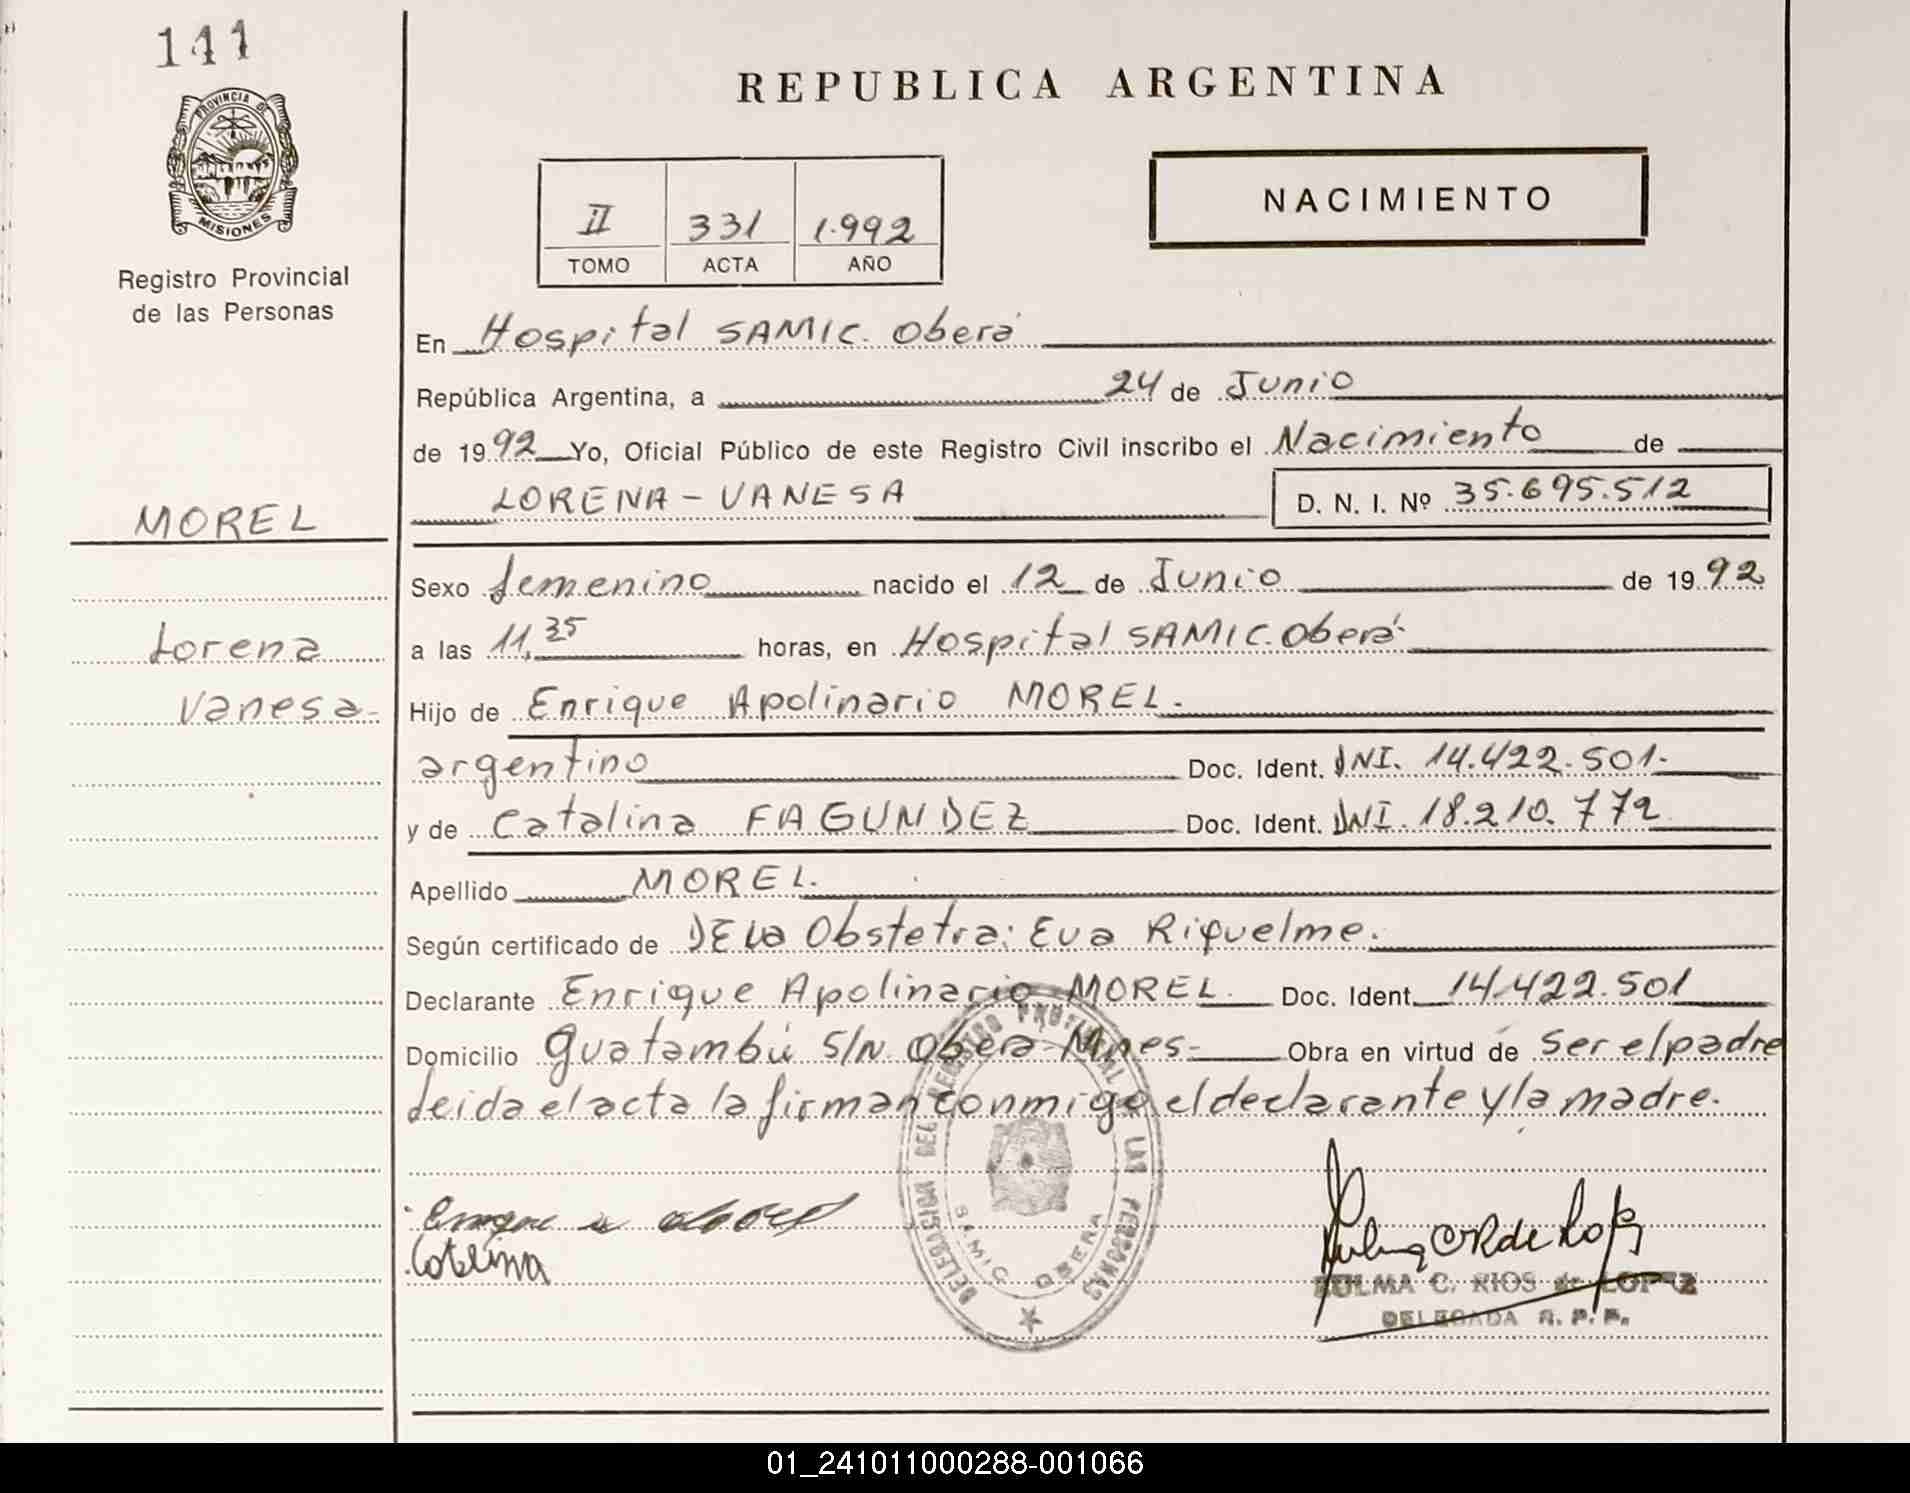 141
PROVINCIA DE
MISIONES
Registro Provincial
de las Personas
REPUBLICA ARGENTINA
II 331 1.992
TOMO ACTA AÑO
NACIMIENTO
En Hospital SAMIC. Oberá
República Argentina, a 24 de Junio
de 1992 Yo, Oficial Público de este Registro Civil inscribo el Nacimiento de
LORENA - VANESA D. N. I. Nº 35.695.512
MOREL
Lorena
Vanesa-
Sexo femenino nacido el 12 de Junio de 1992
a las 11,35 horas, en Hospital SAMIC. Oberá-
Hijo de Enrique Apolinario MOREL.
argentino Doc. Ident. DNI. 14.422.501.
y de Catalina FAGUNDEZ Doc. Ident. DNI. 18.210.772
Apellido MOREL.
Según certificado de DE La Obstetra: Eva Riquelme.
Declarante Enrique Apolinario MOREL. Doc. Ident. 14.422.501
Domicilio Guatambú S/N. Oberá-Mnes- Obra en virtud de ser el padre
leida el acta la firman conmigo el declarante y la madre.
DELEGACION DEL REGISTRO PROVINCIAL DE LAS PERSONAS
SAMIC OBERA
ZULMA C. RIOS de LOPEZ
DELEGADA R. P. P.
01_241011000288-001066